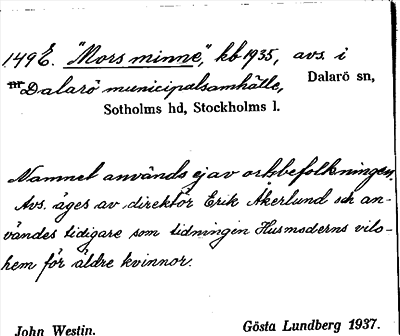 149E. "Mors minne", kb 1935, avs. i
Dalarö municipalsamhälle, Dalarö sn,
Sotholms hd, Stockholms l.
Namnet används ej av ortsbefolkningen.
Avs. äges av direktör Erik Åkerlund och an-
vändes tidigare som tidningen Husmoderns vilo-
hem för äldre kvinnor.
John Westin. Gösta Lundberg 1937.